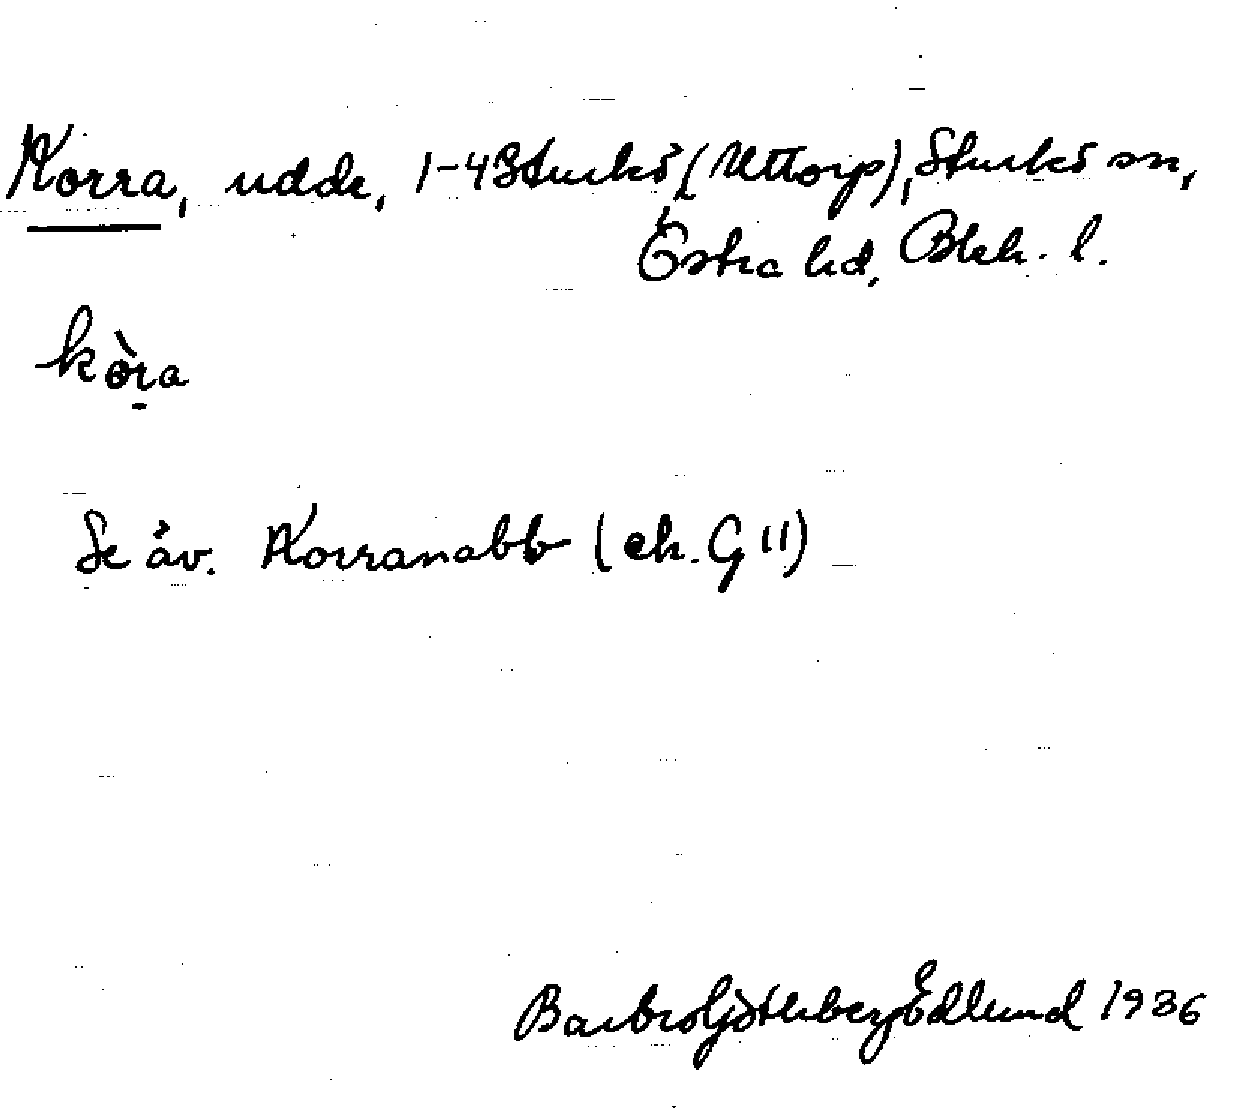 Korra, udde, 1-43 Sturkö (Uttorp), Sturkö sn,
Östra hd, Blek. l.
kòra
Se äv. Korranabb (ek. G 11)
Barbro Götlberg Edlund 1936